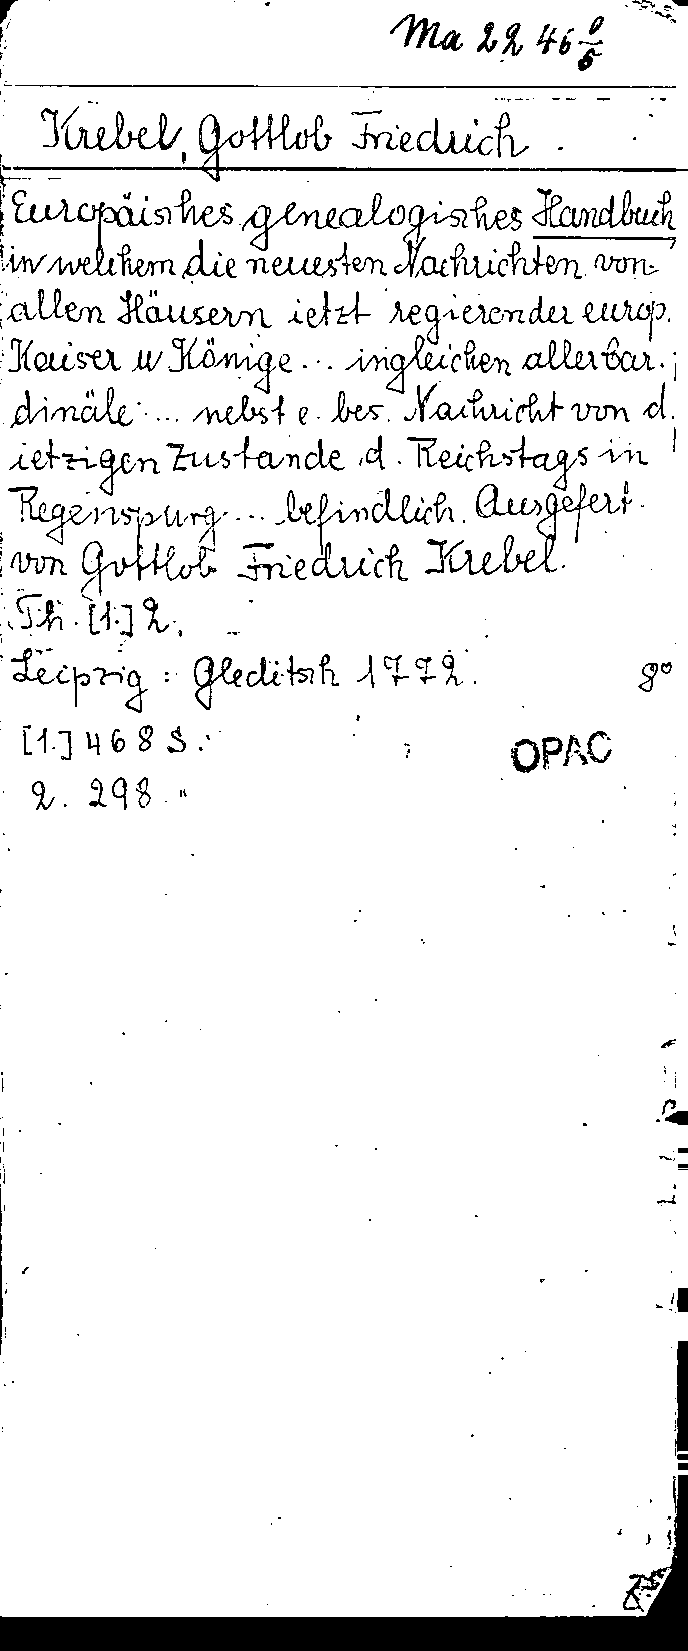 Ma 22 46
Krebel, Gottlob Friedrich.
Europäisches genealogisches Handbuch
in welchem die neuesten Nachrichten von
allen Häusern ietzt regierender europ.
Kaiser u Könige ... ingleichen aller Car-
dinäle ... nebst e. bes. Nachricht von d.
ietzigen Zustande d. Reichstags in
Regenspurg ... befindlich. Ausgefert.
von Gottlob Friedrich Krebel.
Th. [1.] 2.
Leipzig : Gleditsch 1772. 8°
[1.] 468 S.
2. 298 "
OPAC